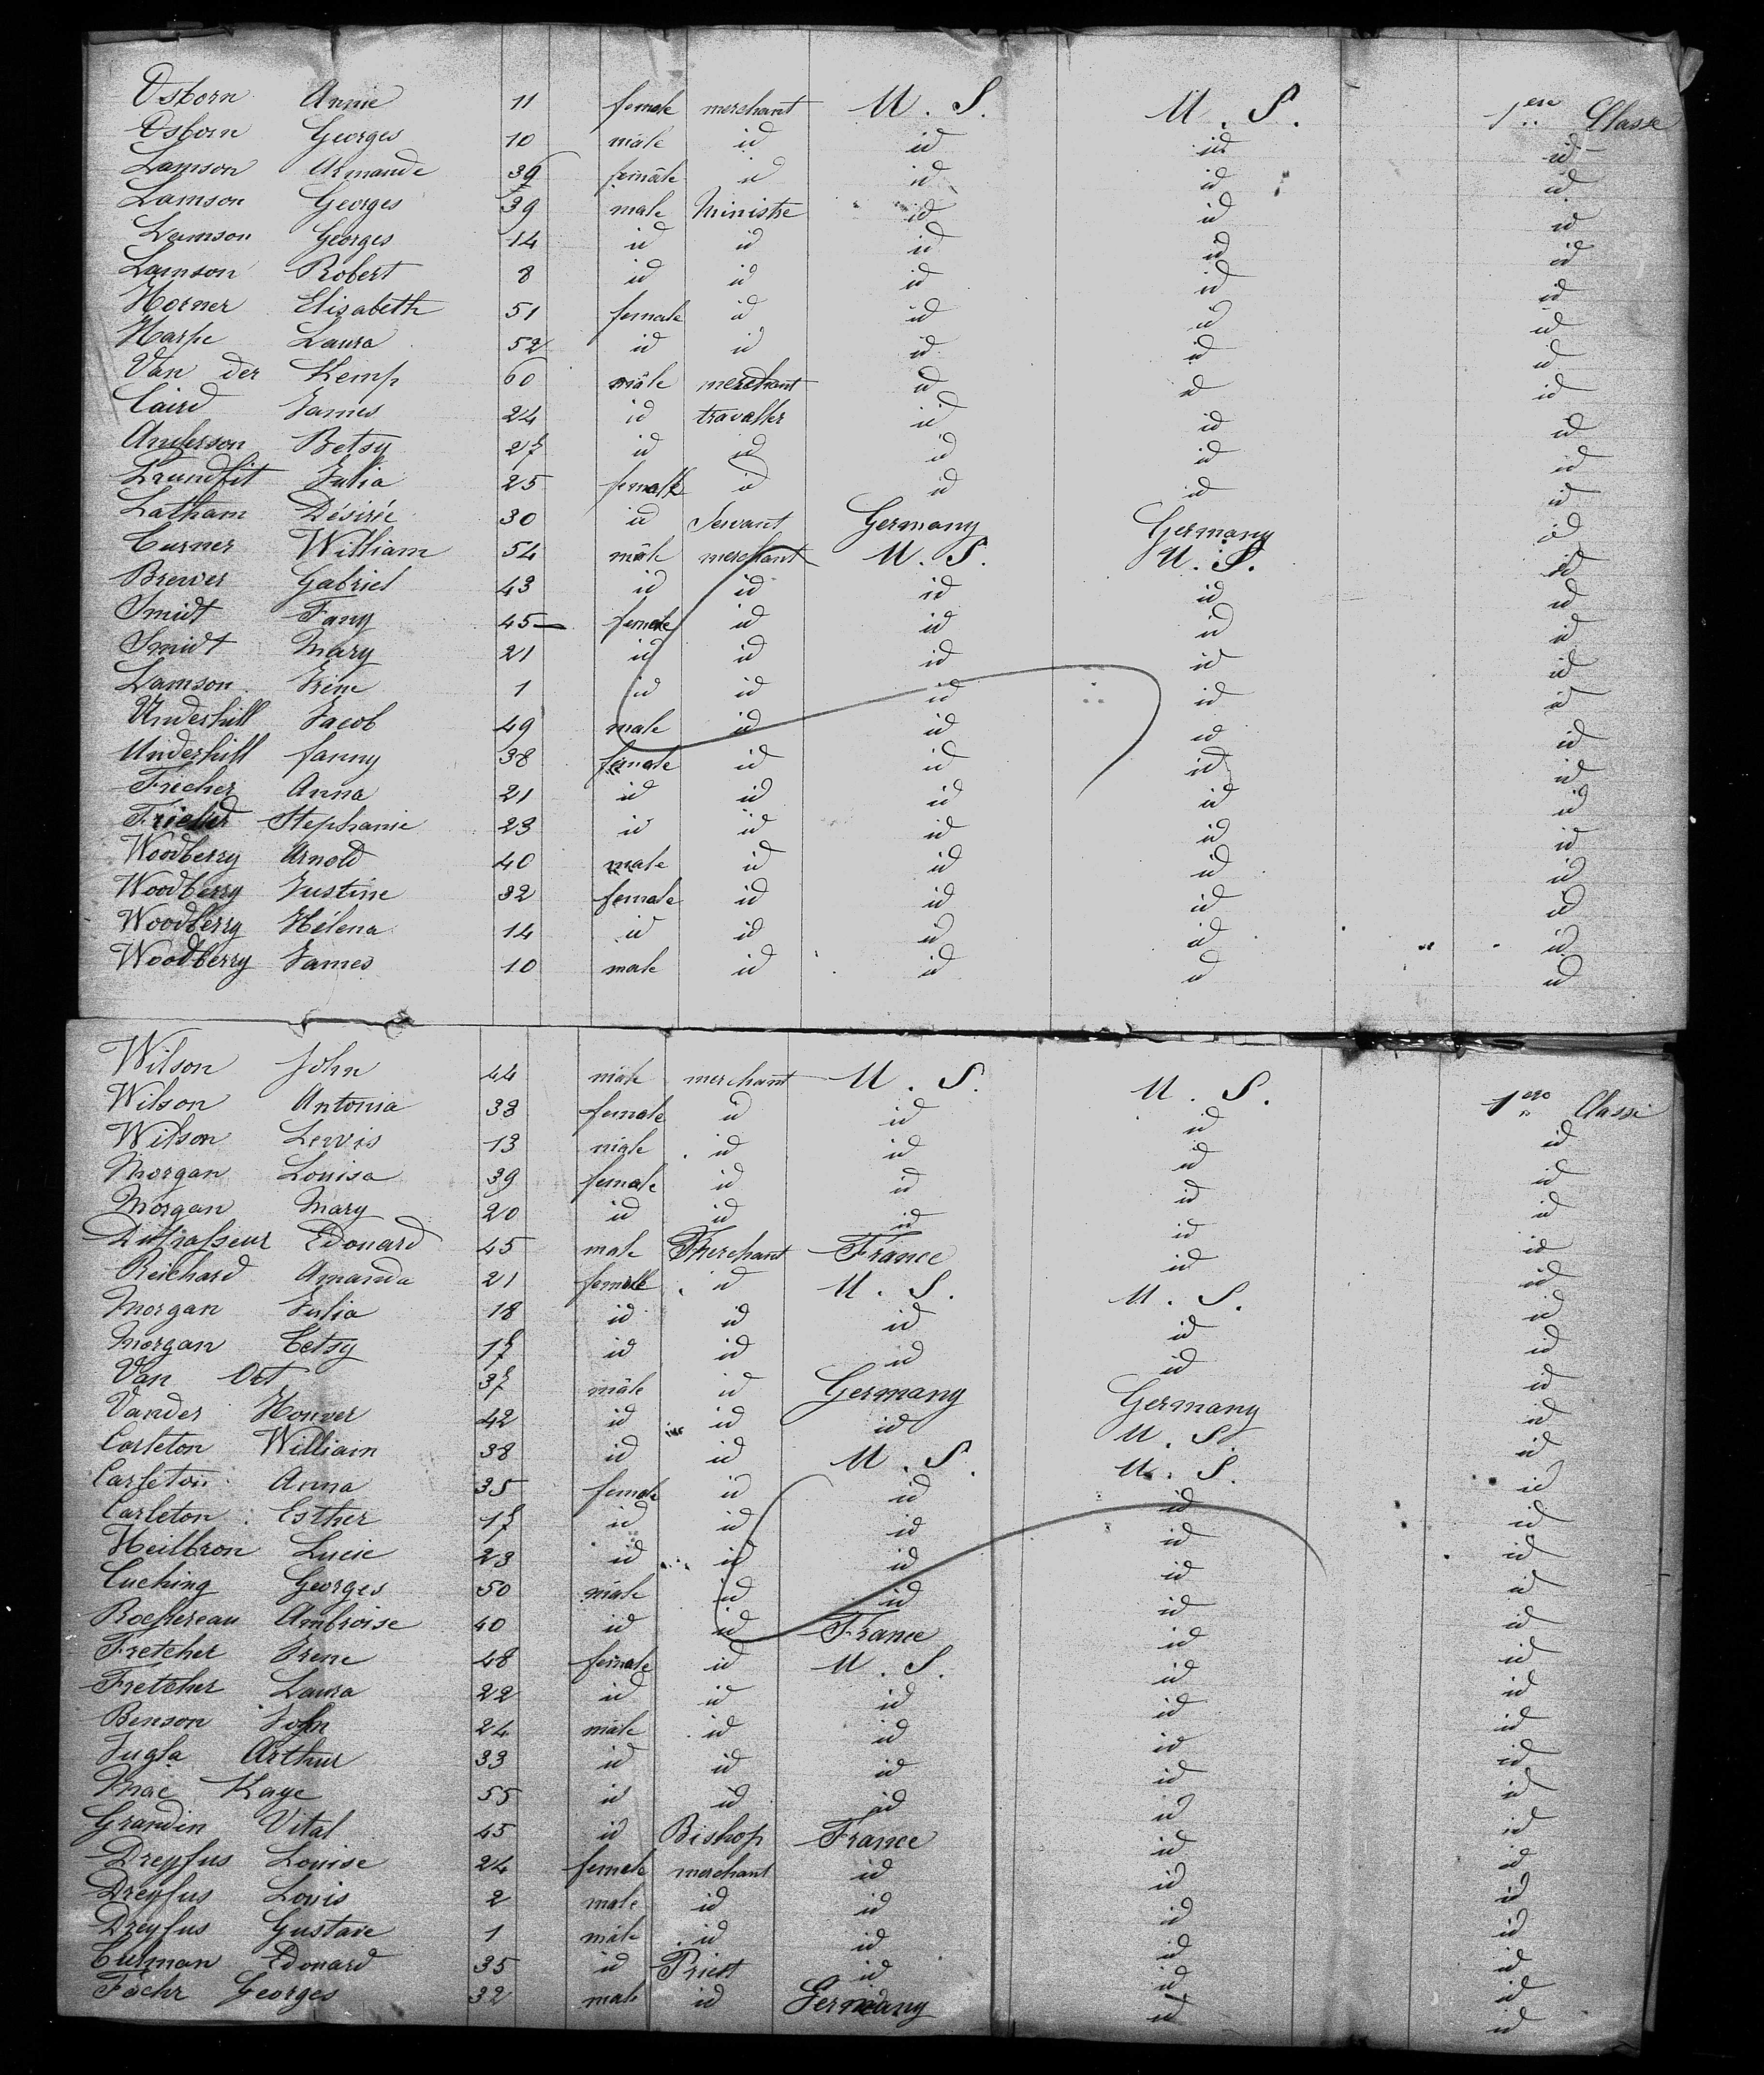 Osborn Annie 11 female merchant U.S. U.S. 1ere Classe
Osborn Georges 10 male id id id id
Lamson Armande 39 female id id id id
Lamson Georges 39 male Ministre id id id
Lamson Georges 14 id id id id id
Lamson Robert 8 id id id id id
Horner Elisabeth 51 female id id id id
Harpe Laura 52 id id id id id
Van der Kemp 60 male merchant id id id
Caird James 24 id traveller id id id
Anderson Betsy 27 id id id id id
Trundfit Julia 25 female id id id id
Latham Désirée 30 id Servant Germany Germany id
Curner William 54 male merchant U.S. U.S. id
Brewer Gabriel 43 id id id id id
Smidt Fany 45 female id id id id
Smidt Mary 21 id id id id id
Lamson Irène 1 id id id id id
Underhill Jacob 49 male id id id id
Underhill fanny 38 female id id id id
Fricher Anna 21 id id id id id
Stephanie 23 id id id id id
Woodberry Arnold 40 male id id id id
Woodberry Justine 32 female id id id id
Woodberry Hélena 14 id id id id id
Woodberry James 10 male id id id id
Wilson John 44 male merchant U.S. U.S. 1ere Classe
Wilson Antonia 38 female id id id id
Wilson Lewis 13 male id id id id
Morgan Louisa 39 female id id id id
Morgan Mary 20 id id id id id
Edouard 45 male Merchant France id id
Reichard Amanda 21 female id U.S. U.S. id
Morgan Julia 18 id id id id id
Morgan Betsy 17 id id id id id
Van Ort 37 male id Germany Germany id
Vander Houver 42 id id id U.S. id
Carleton William 38 id id U.S. U.S. id
Carleton Anna 35 female id id id id
Carleton Esther 17 id id id id id
Heilbron Lucie 23 id id id id id
Cuching Georges 50 male id id id id
Rochereau Ambroise 40 id id France id id
Fretcher Irene 48 female id U.S. id id
Fretcher Laura 22 id id id id id
Benson John 24 male id id id id
Jugla Arthur 33 id id id id id
Mac Kaye 55 id id id id id
Grandin Vital 45 id Bishop France id id
Dreyfus Louise 24 female merchant id id id
Dreyfus Louis 2 male id id id id
Dreyfus Gustave 1 male id id id id
Culman Edouard 35 id Priest id id id
Foehr Georges 32 male id Germany id id